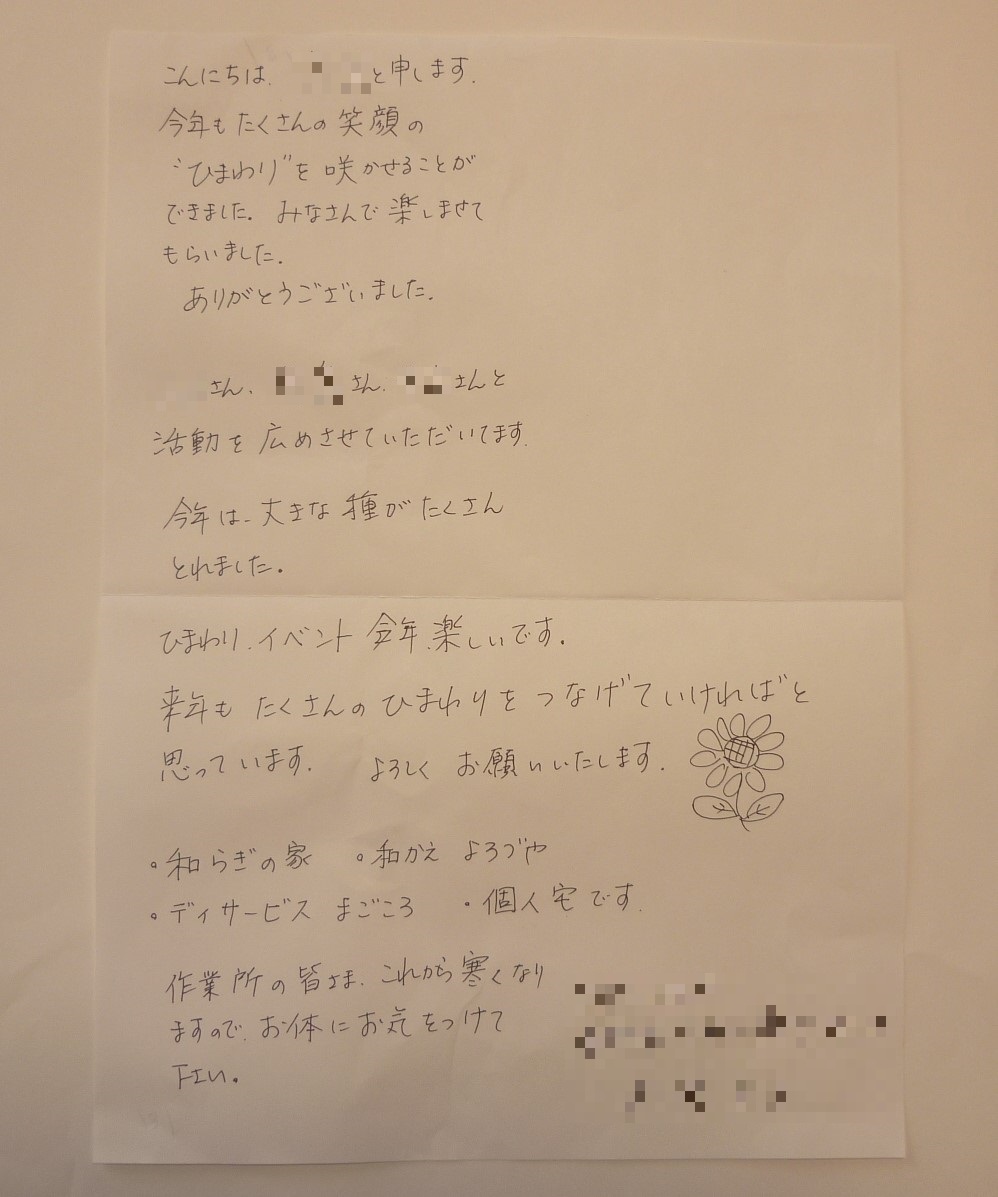 こんにちは、 と申します.
今年もたくさんの笑顔の
"ひまわり"を咲かせることが
できました. みなさんで楽しませて
もらいました.
ありがとうございました.
さん、 さん、 さんと
活動を広めさせていただいてます.
今年は、大きな種がたくさん
とれました.
ひまわり、イベント 今年、楽しいです.
来年もたくさんのひまわりをつなげていければと
思っています. よろしくお願いいたします.
・和らぎの家 ・和かえ よろづや
・ディサービス まごころ ・個人宅です.
作業所の皆さま、これから寒くなり
ますので、お体にお気をつけて
下さい.